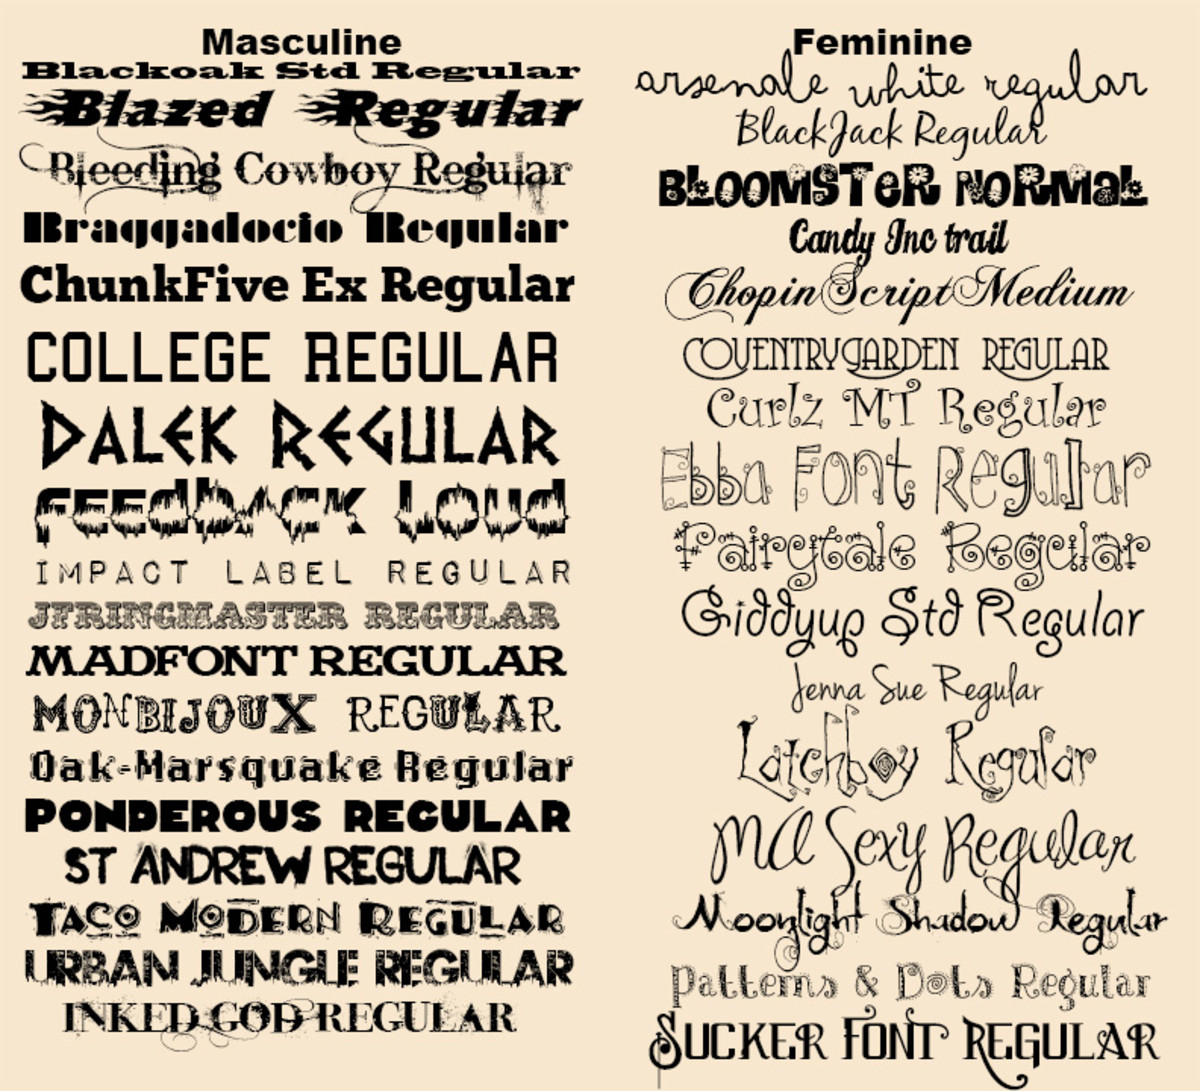 Masculine
Blackoak Std Regular
Blazed Regular
Bleeding Cowboy Regular
Braggadocio Regular
ChunkFive Ex Regular
COLLEGE REGULAR
DALEK REGULAR
FEEdbACK LOUD
IMPACT LABEL REGULAR
JFRINGMASTER REGULAR
MADFONT REGULAR
MONBIJOUX REGULAR
Oak-Marsquake Regular
PONDEROUS REGULAR
ST ANDREW REGULAR
TACO MODERN REGULAR
URBAN JUNGLE REGULAR
INKED GOD REGULAR
Feminine
arsenale white regular
BlackJack Regular
BLOOMSTER NORMAL
Candy Inc trail
ChopinScriptMedium
COVENTRYGARDEN REGULAR
Curlz MT Regular
Ebba Font Regular
Fairytale Regular
Giddyup Std Regular
Jenna Sue Regular
Latchboy Regular
MA Sexy Regular
Moonlight Shadow Regular
Patterns & Dots Regular
SUCKER FONT REGULAR